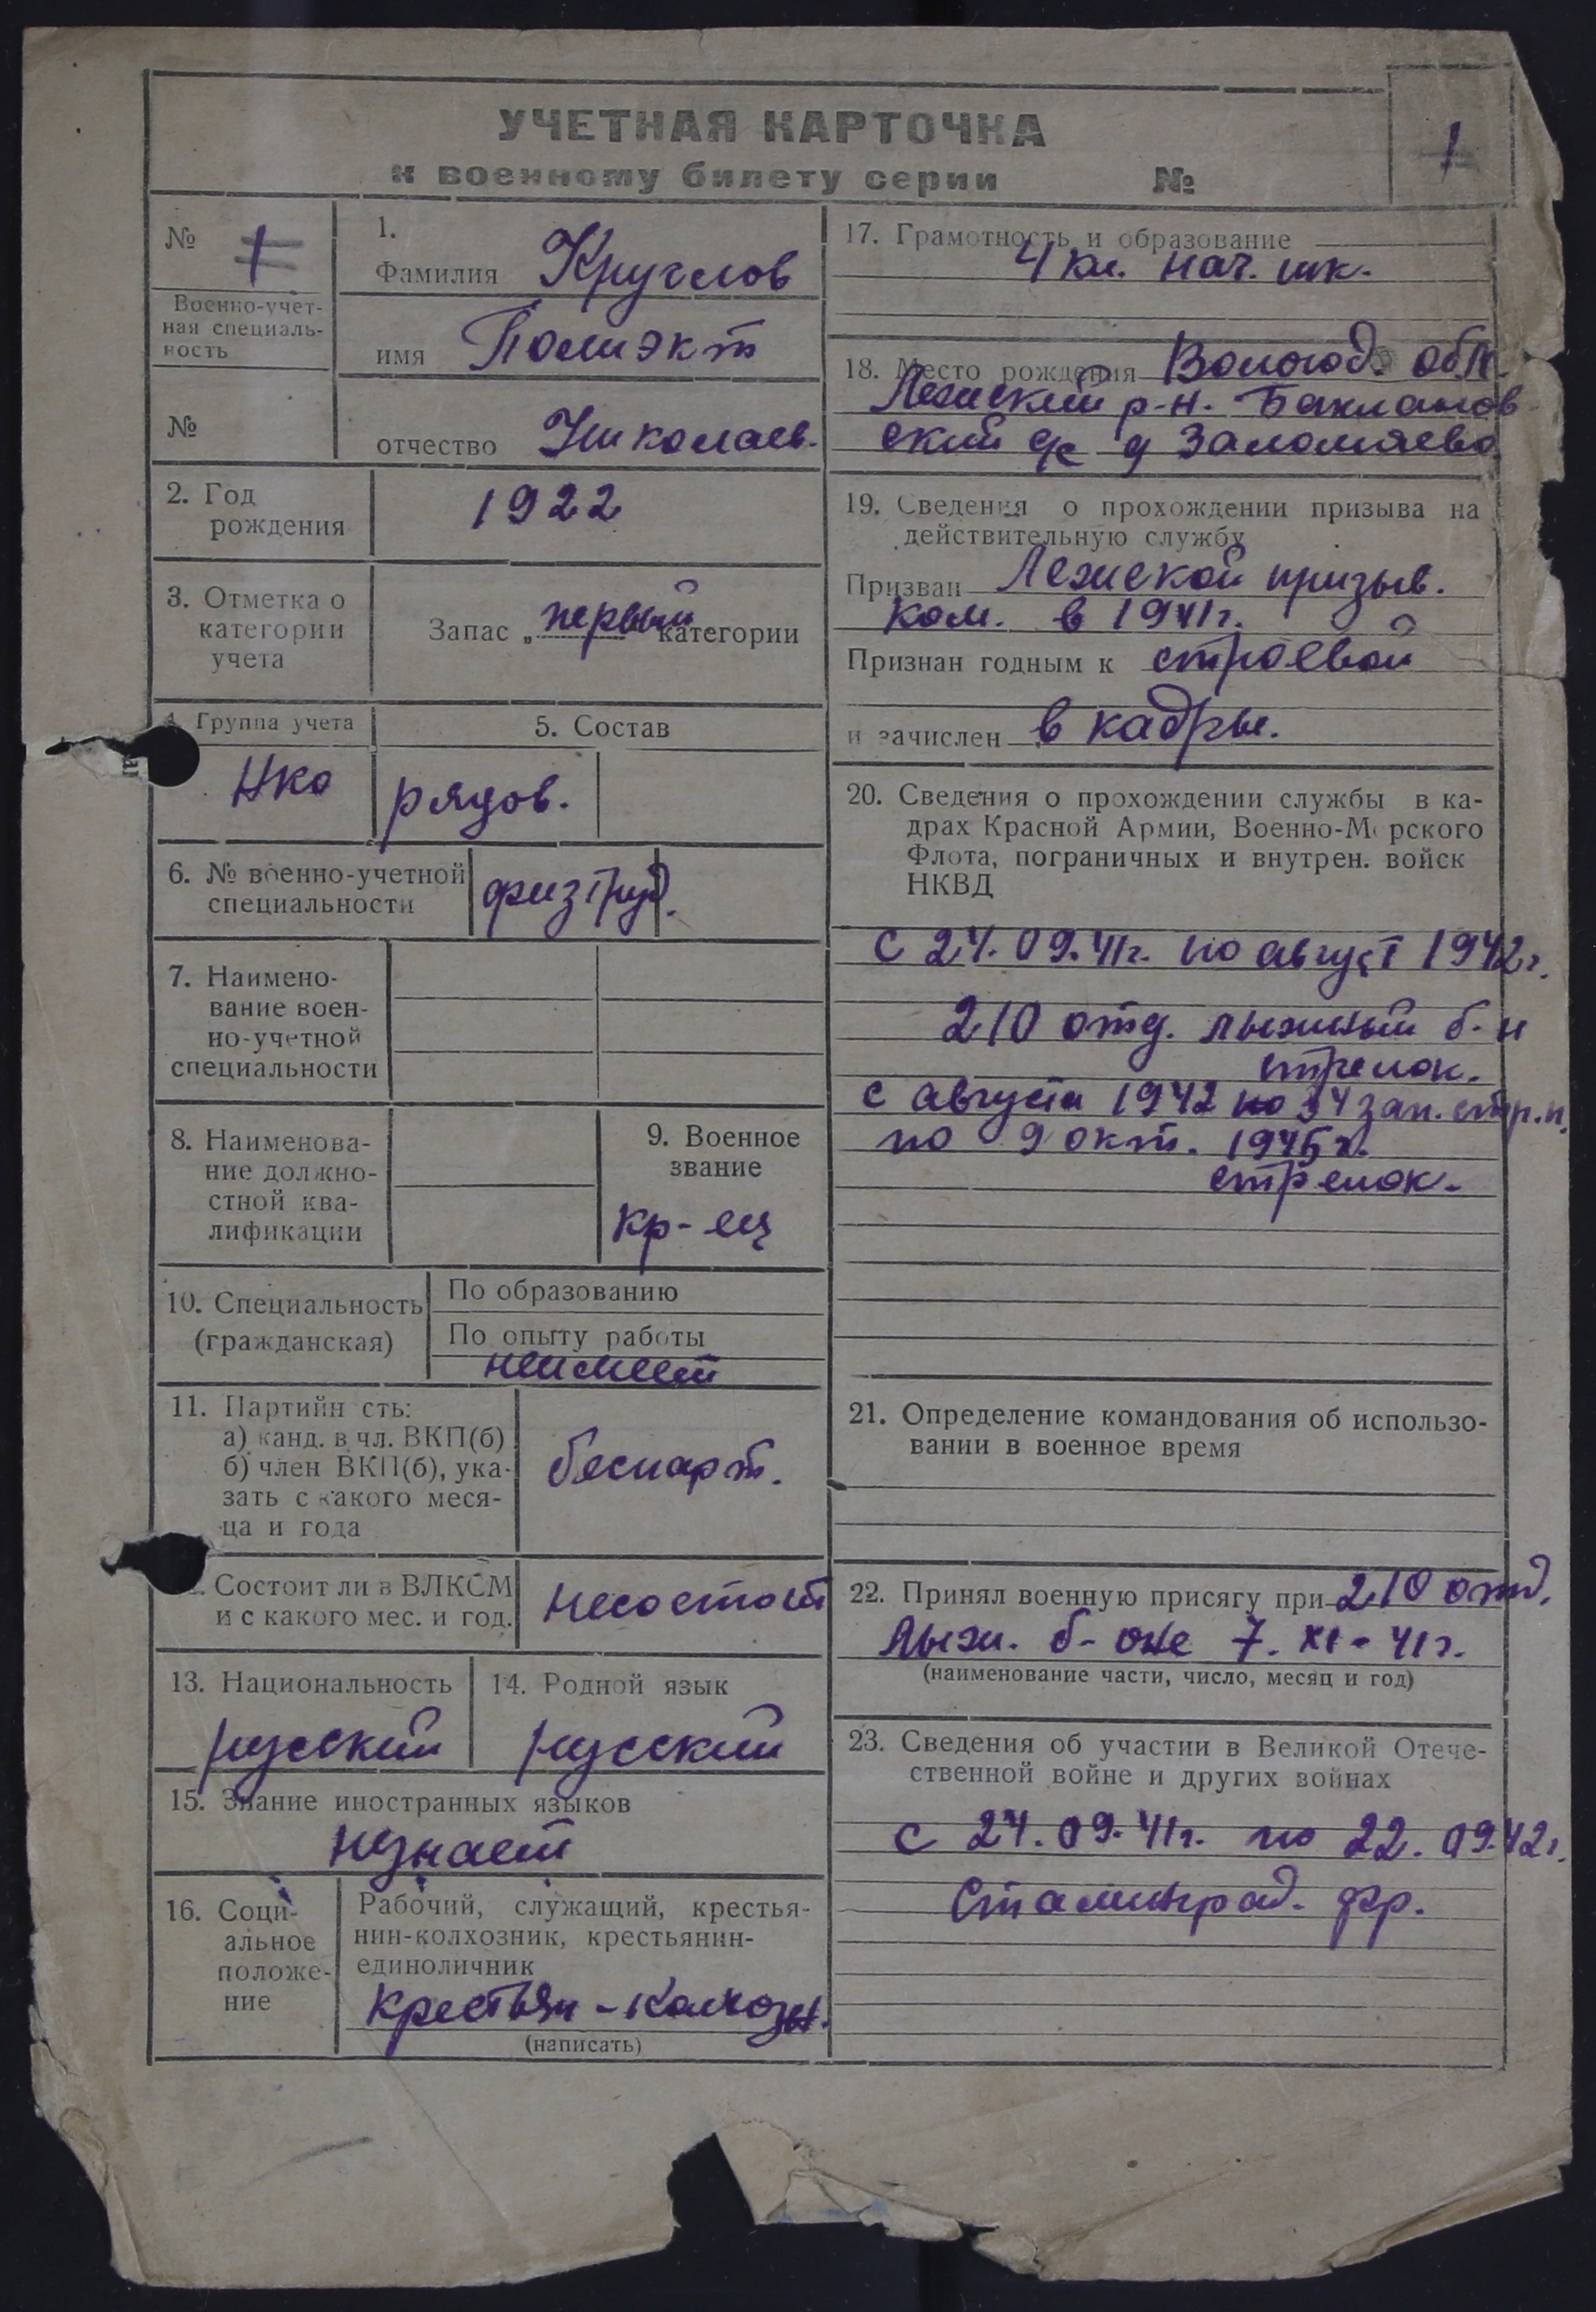 УЧЕТНАЯ КАРТОЧКА
к военному билету серии №
1
№ 1
Военно-учет-
ная специаль-
ность
№
1.
Фамилия Круглов
имя Полиэкт
отчество Николаев.
2. Год
рождения
1922
3. Отметка о
категории
учета
Запас „первый категории
4. Группа учета
НКО
5. Состав
рядов.
6. № военно-учетной
специальности
физтруд.
7. Наимено-
вание воен-
но-учетной
специальности
8. Наименова-
ние должно-
стной ква-
лификации
9. Военное
звание
кр-ец
10. Специальность
(гражданская)
По образованию
По опыту работы
неимеет
11. Партийн сть:
а) канд. в чл. ВКП(б)
б) член ВКП(б), ука-
зать с какого меся-
ца и года
беспарт.
Состоит ли в ВЛКСМ
и с какого мес. и год.
несостоит
13. Национальность
русский
14. Родной язык
русский
15. Знание иностранных языков
незнает
16. Соци-
альное
положе-
ние
Рабочий, служащий, крестья-
нин-колхозник, крестьянин-
единоличник
крестьян-колхозн.
(написать)
17. Грамотность и образование
4 кл. нач. шк.
18. Место рождения Вологод. обл.
Лежский р-н. Баклановский
ский с/с д Заломаево
19. Сведения о прохождении призыва на
действительную службу
Призван Лежской призыв.
ком. в 1941г.
Признан годным к строевой
и зачислен в кадры.
20. Сведения о прохождении службы в ка-
драх Красной Армии, Военно-М рского
Флота, пограничных и внутрен. войск
НКВД
с 24.09.41г. по август 1942г.
210 отд. лыжный б-н
стрелок.
с августа 1942 по 34 зап. стр.п.
по 9 окт. 1945г.
стрелок.
21. Определение командования об использо-
вании в военное время
22. Принял военную присягу при 210 отд.
лыж. б-оне 7. XI-41г.
(наименование части, число, месяц и год)
23. Сведения об участии в Великой Отече-
ственной войне и других войнах
с 24.09.41г. по 22.09.42г.
Сталинград. фр.